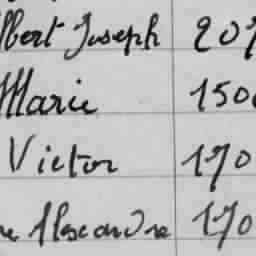 lbert Joseph 207
Marie 150
Victor 170
ne Alexandre 170